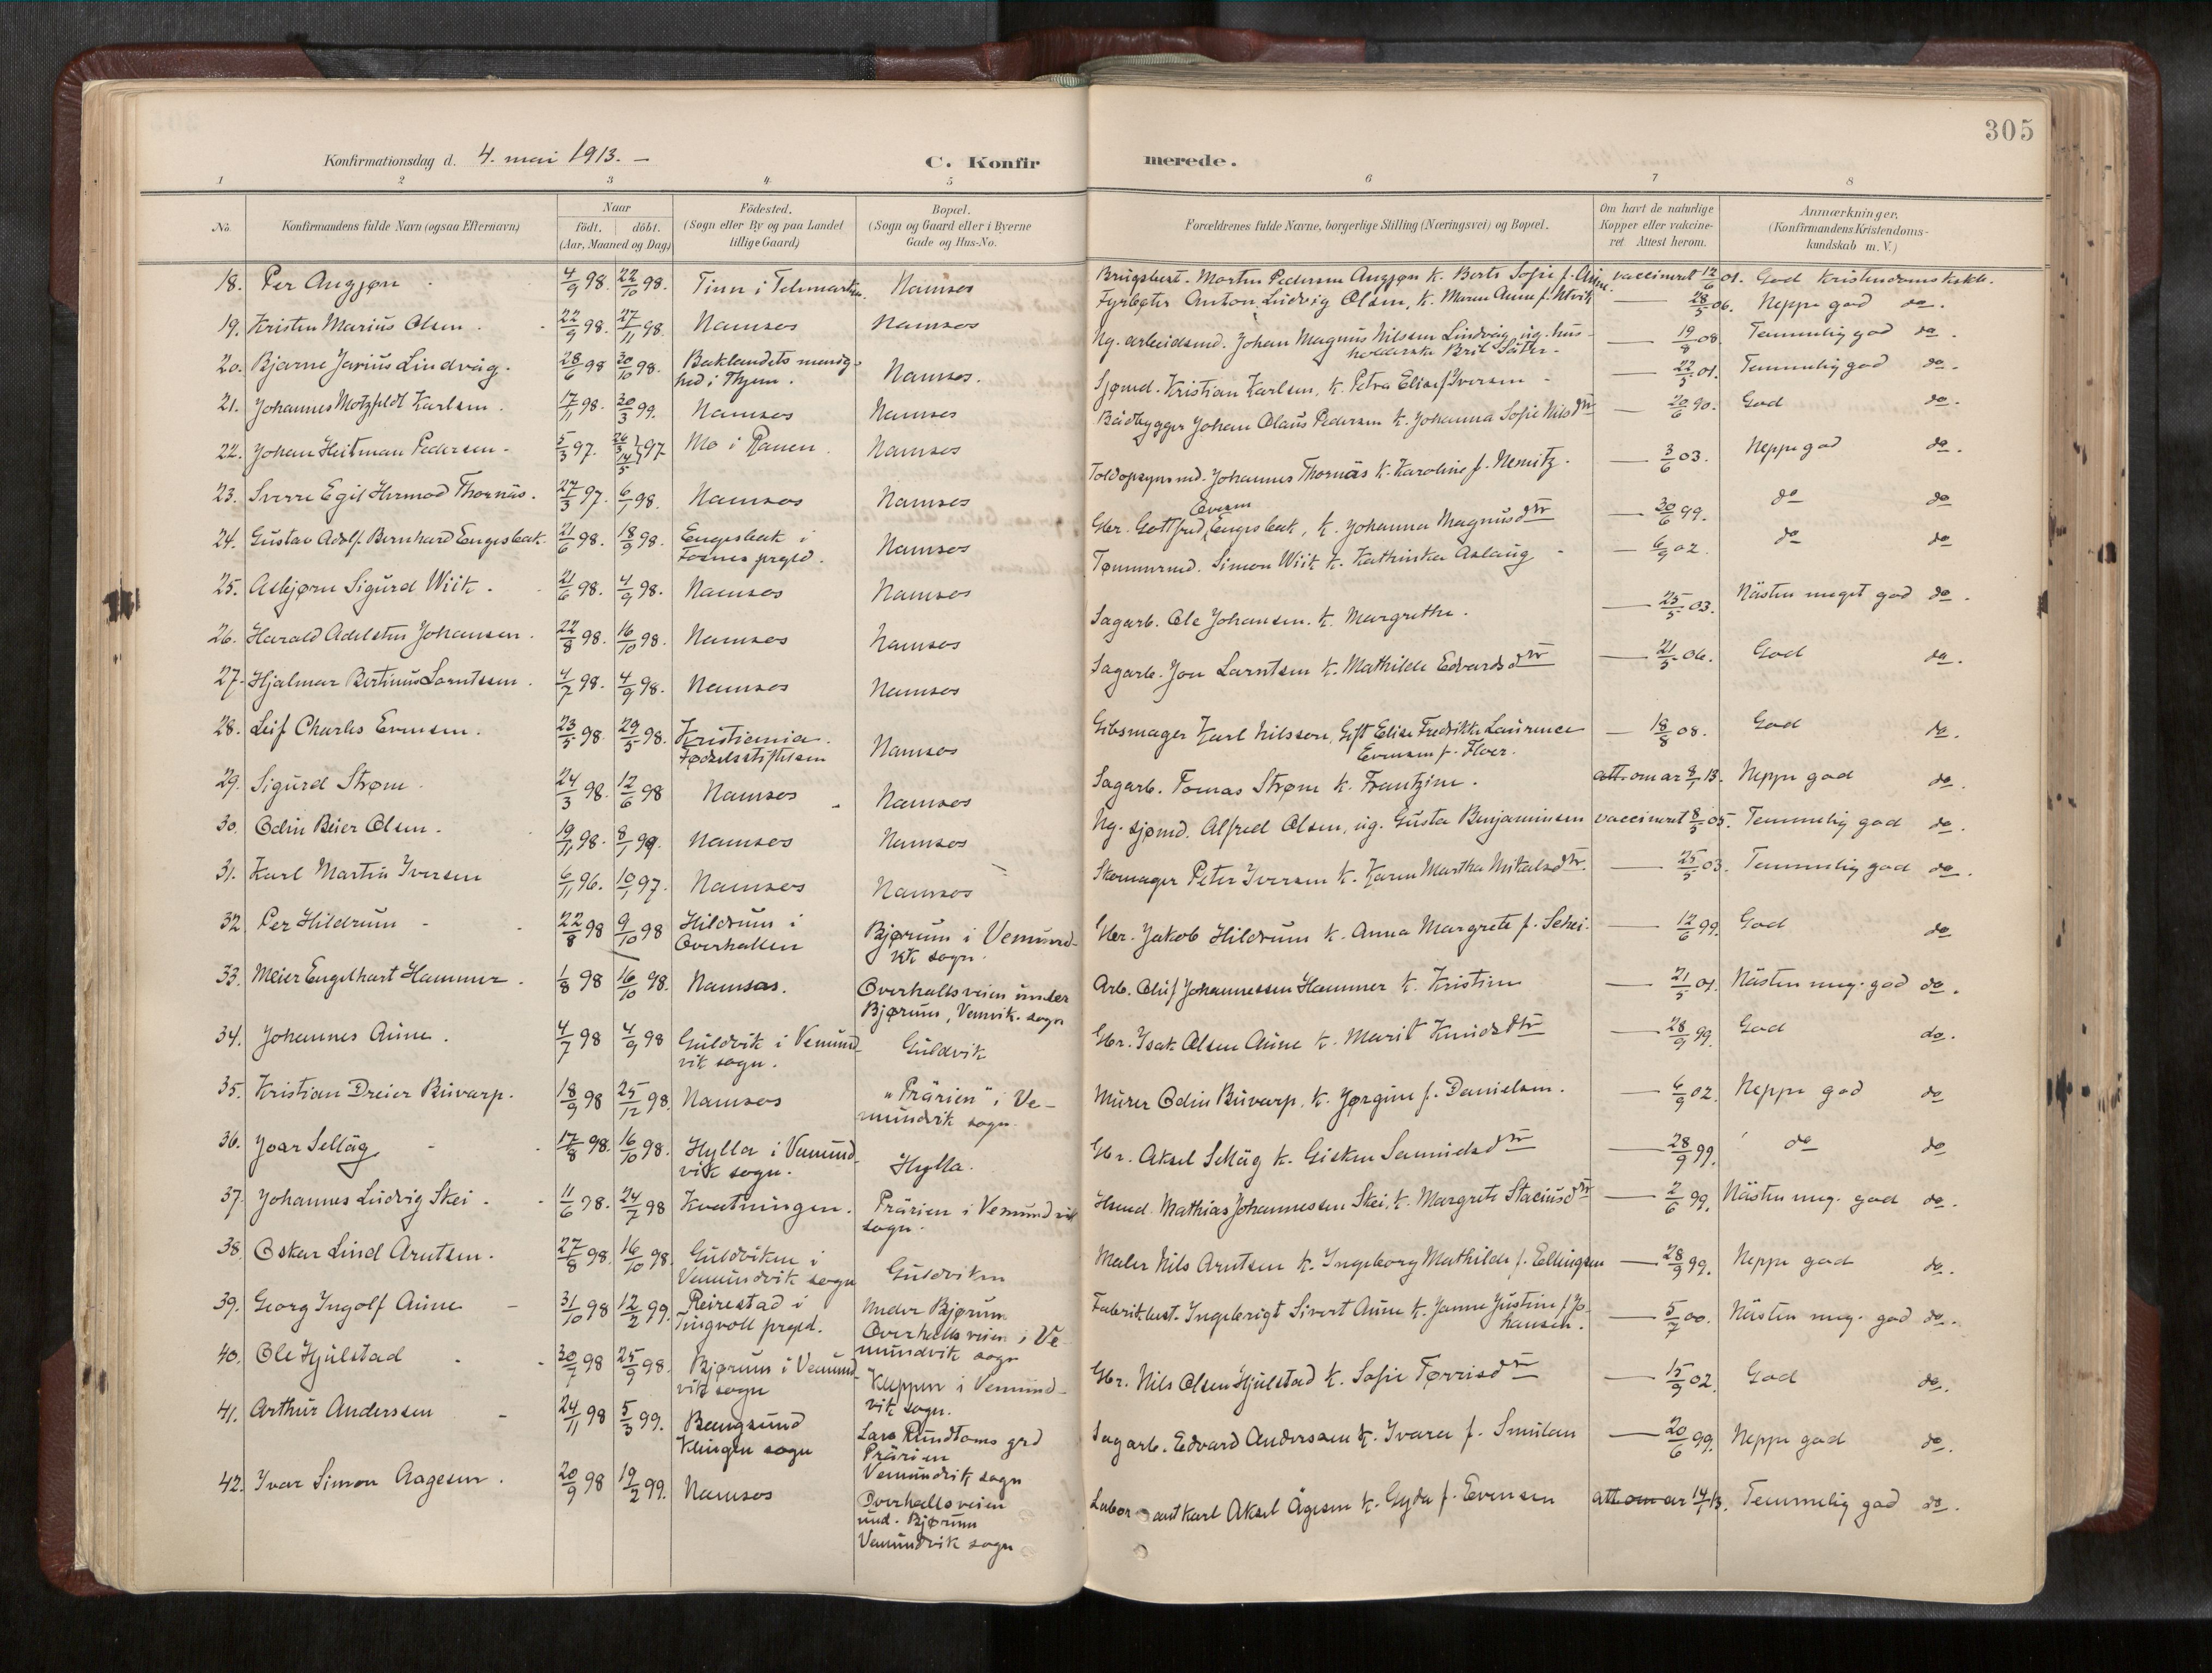 305
Konfirmationsdag d. 4. mai 1913. —
C. Konfir merede.
1 2 3 4. 5 6 7 8
No. Konfirmandens fulde Navn (ogsaa Efternavn) Naar født. døbt. (Aar, Maaned og Dag) Födested. (Sogn eller By og paa Landet tillige Gaard) Bopæl. (Sogn og Gaard eller i Byerne Gade og Hus-No. Forældrenes fulde Navne, borgerlige Stilling (Næringsvei) og Bopæl. Om havt de naturlige Kopper eller vakcineret Attest herom. Anmærkninger. (Konfirmandens Kristendomskundskab m. V.)
18. Per Augjøn 4/9 98. 22/10 98. Tinn i Telemarken Namsos Brugsbest. Morten Pedersen Augjøn k. Berte Sofie f. vaccineret 12/6 01. God Kristendomskskb.
19. Kristen Marius Olsen. 22/9 98. 27/11 98. Namsos Namsos Fyrbøter Anton Ludvig Olsen, k. Maren Anna f. Utvik — 28/5 06. Neppe god do.
20. Bjarne Jarius Lindvåg. 28/6 98 30/10 98. Baklandets menighed i Thjem. Namsos. Ng. arbeidsmd. Johan Magnus Nilssen Lindvåg, ug. husholderske Brit Säter. — 19/8 08. Temmelig god do.
21. Johannes Motzfeldt Karlsen. 17/11 98. 30/3 99. Namsos Namsos Sjømd. Kristian Karlsen, k. Petra Elise f. Iversen — 22/5 01. Temmelig god do.
22. Johan Heitman Pedersen. 5/3 97. 26/3 14/5 97 Mo i Ranen. Namsos Bådbygger Johan Olaus Pedersen k. Johanna Sofie Nilsdtr — 20/6 90. God do.
23. Sverre Egil Hermod Thornäs. 27/3 97. 6/1 98. Namsos Namsos Toldopsynsmd. Johannes Thornäs k. Karoline f. Nemitz. — 3/6 03. Neppe god do.
24. Gustav Adolf Bernhard Engesbak. 21/6 98. 18/9 98. Engesbak i Fosnes prgld. Namsos Gbr. Gottfred Evesen Engesbak, k. Johanna Magnusdtr — 30/6 99. do do
25. Asbjørn Sigurd Wiik. 21/6 98. 4/9 98. Namsos Namsos Tømmermd. Simon Wiik k. Kathinka Aslaug — 6/9 02. do do
26. Harald Adelsten Johansen. 22/8 98. 16/10 98. Namsos Namsos Sagarb. Ole Johansen. k. Margrethe. — 25/5 03. Nästen meget god do.
27. Hjalmar Bertinus Larntsen. 4/7 98. 4/9 98. Namsos Namsos Sagarb. Jon Larntsen k. Mathilde Edvardsdtr — 21/5 06. God do.
28. Leif Charles Evensen. 23/5 98. 29/5 98. Kristiania. Fødselsstiftelsen Namsos Gibsmager Karl Nilssen, Gift Elise Fredrikke Laurence Evensen f. Floer. — 18/8 08. God do.
29. Sigurd Strøm. 24/3 98. 12/6 98 Namsos Namsos Sagarb. Tomas Strøm k. Frantzine. att. om ar 8/1 13. Neppe god do.
30. Odin Beier Olsen. 19/11 98. 8/1 99. Namsos Namsos Ng. sjømd. Alfred Olsen, ug. Gusta Benjaminsen vaccineret 8/5 05. Temmelig god do.
31. Karl Martin Iversen 6/11 96. 10/1 97. Namsos Namsos Skomager Peter Iversen k. Karen Martha Mikalsdtr. — 25/5 03. Temmelig god do.
32. Per Hildrum 22/8 98 9/10 98 Hildrum i Overhallen Bjørum i Vemundvik sogn. Gbr. Jakob Hildrum k. Anna Margrete f. Schei. — 12/6 99. God do
33. Meier Engelhart Hammer. 1/8 98 16/10 98. Namsos. Overhallsveien under Bjørum, Vemvik. sogn Arb. Oluf Johannessen Hammer k. Kristine — 21/5 01. Nästen meg. god do.
34. Johannes Aune. 4/7 98 4/9 98 Guldvik i Vemundvik sogn. Guldvik Gbr. Isak Olsen Aune k. Marit Knudsdtr — 28/9 99. God do.
35. Kristian Dreier Buvarp. 18/9 98 25/12 98. Namsos "Prärien" i Vemundvik sogn. Murer Odin Buvarp, k. Jørgine f. Danielsen. — 6/9 02. Neppe god do
36. Joar Selläg. 17/8 98. 16/10 98. Hylla i Vemundvik sogn. Hylla. Gbr. Aksel Selläg k. Gisken Samuelsdtr — 28/9 99. do do
37. Johannes Ludvig Skei. 11/6 98. 24/7 98 Kvatningen. Prärien i Vemundvik sogn. Husmd. Mathias Johannessen Skei, k. Margrete Staciusdtr — 2/6 99. Nästen meg. god do.
38. Oskar Lind Arntsen. 27/8 98. 16/10 98. Guldviken i Vemundvik sogn Guldviken Maler Nils Arntsen k. Ingeborg Mathilde f. Ellingsen — 28/9 99. Neppe god do.
39. Georg Ingolf Aune 31/10 98 12/2 99. Reirestad i Tingvoll prgld. Under Bjørum Overhallsveien i Vemundvik sogn Fabrikbest. Ingebrigt Sivert Aune k. Janne Justine f. Johansen. — 5/7 00. Nästen meg. god do.
40. Ole Hjulstad 30/7 98 25/9 98. Bjørum i Vemundvik sogn Kleppen i Vemundvik sogn. Gbr. Nils Olsen Hjulstad k. Sofie Tørrisdtr — 15/9 02. God do.
41. Arthur Anderssen 24/11 98 5/3 99. Bangsund Klingen sogn Lars Rundtoms grd Prärien Vemundvik sogn Sagarb. Edvard Anderssen k. Ivara f. Smulan — 20/6 99. Neppe god do.
42. Ivar Simon Aagesen. 20/9 98 19/2 99. Namsos Overhallsveien und. Bjørum Vemundvik sogn Laborant Karl Aksel Ågesen k. Gyda f. Evensen att. om ar 14/1 13. Temmelig god do.